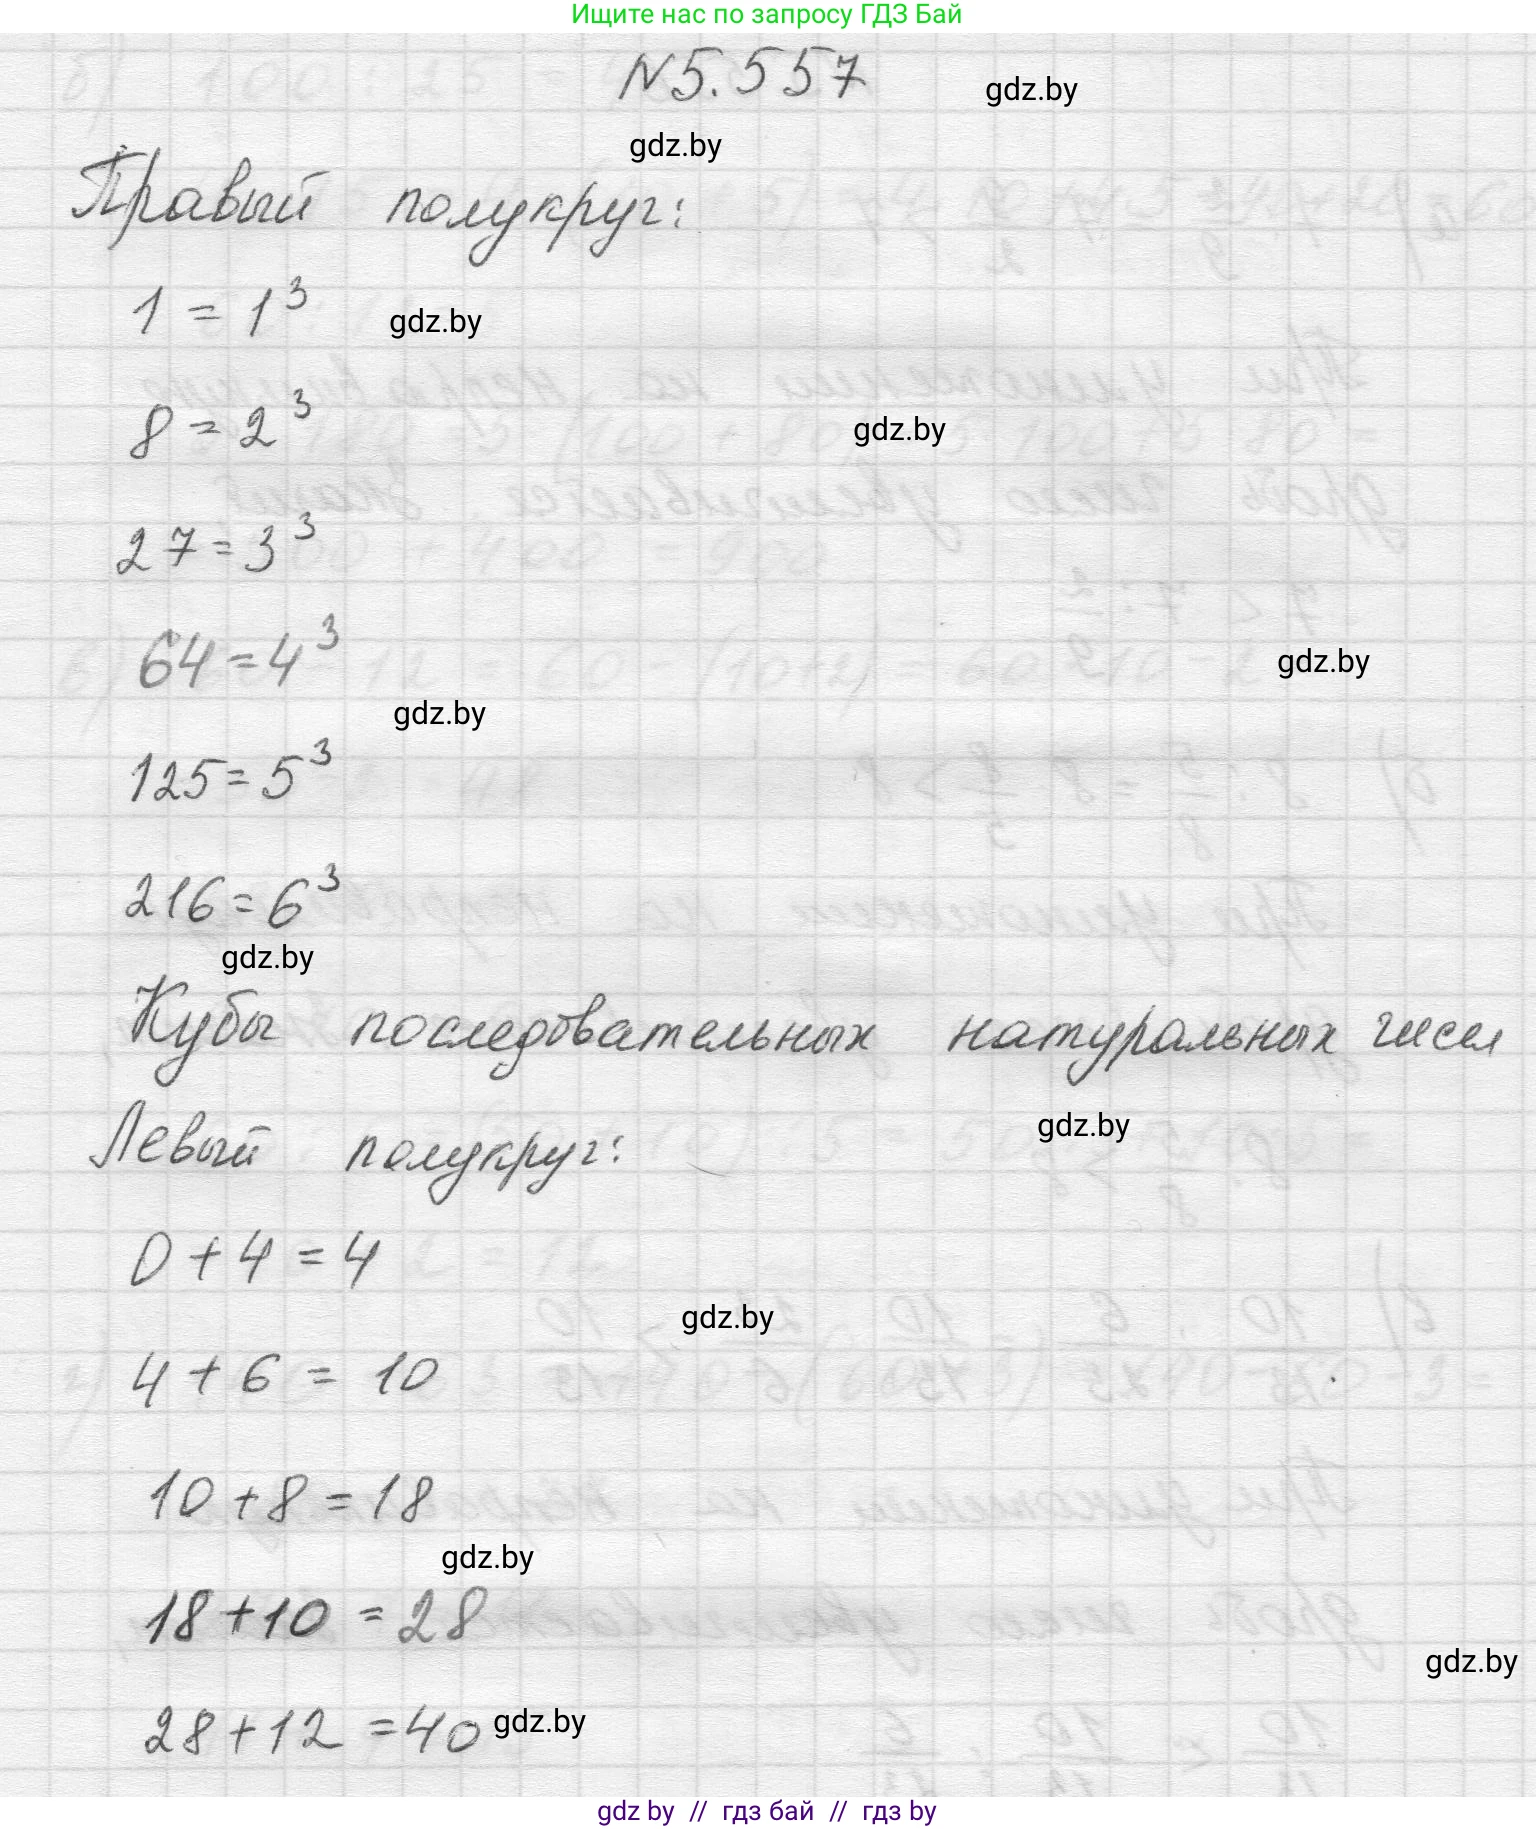 Ищите нас по запросу ГДЗ Бай
№5.557
gdz.by
gdz.by
Правый полукруг:
1 = 1³
gdz.by
8 = 2³
gdz.by
27 = 3³
64 = 4³
gdz.by
gdz.by
125 = 5³
216 = 6³
gdz.by
Кубы последовательных натуральных чисел
gdz.by
Левый полукруг:
0 + 4 = 4
gdz.by
4 + 6 = 10
10 + 8 = 18
gdz.by
18 + 10 = 28
gdz.by
28 + 12 = 40
gdz.by
gdz by // гдз бай // гдз by